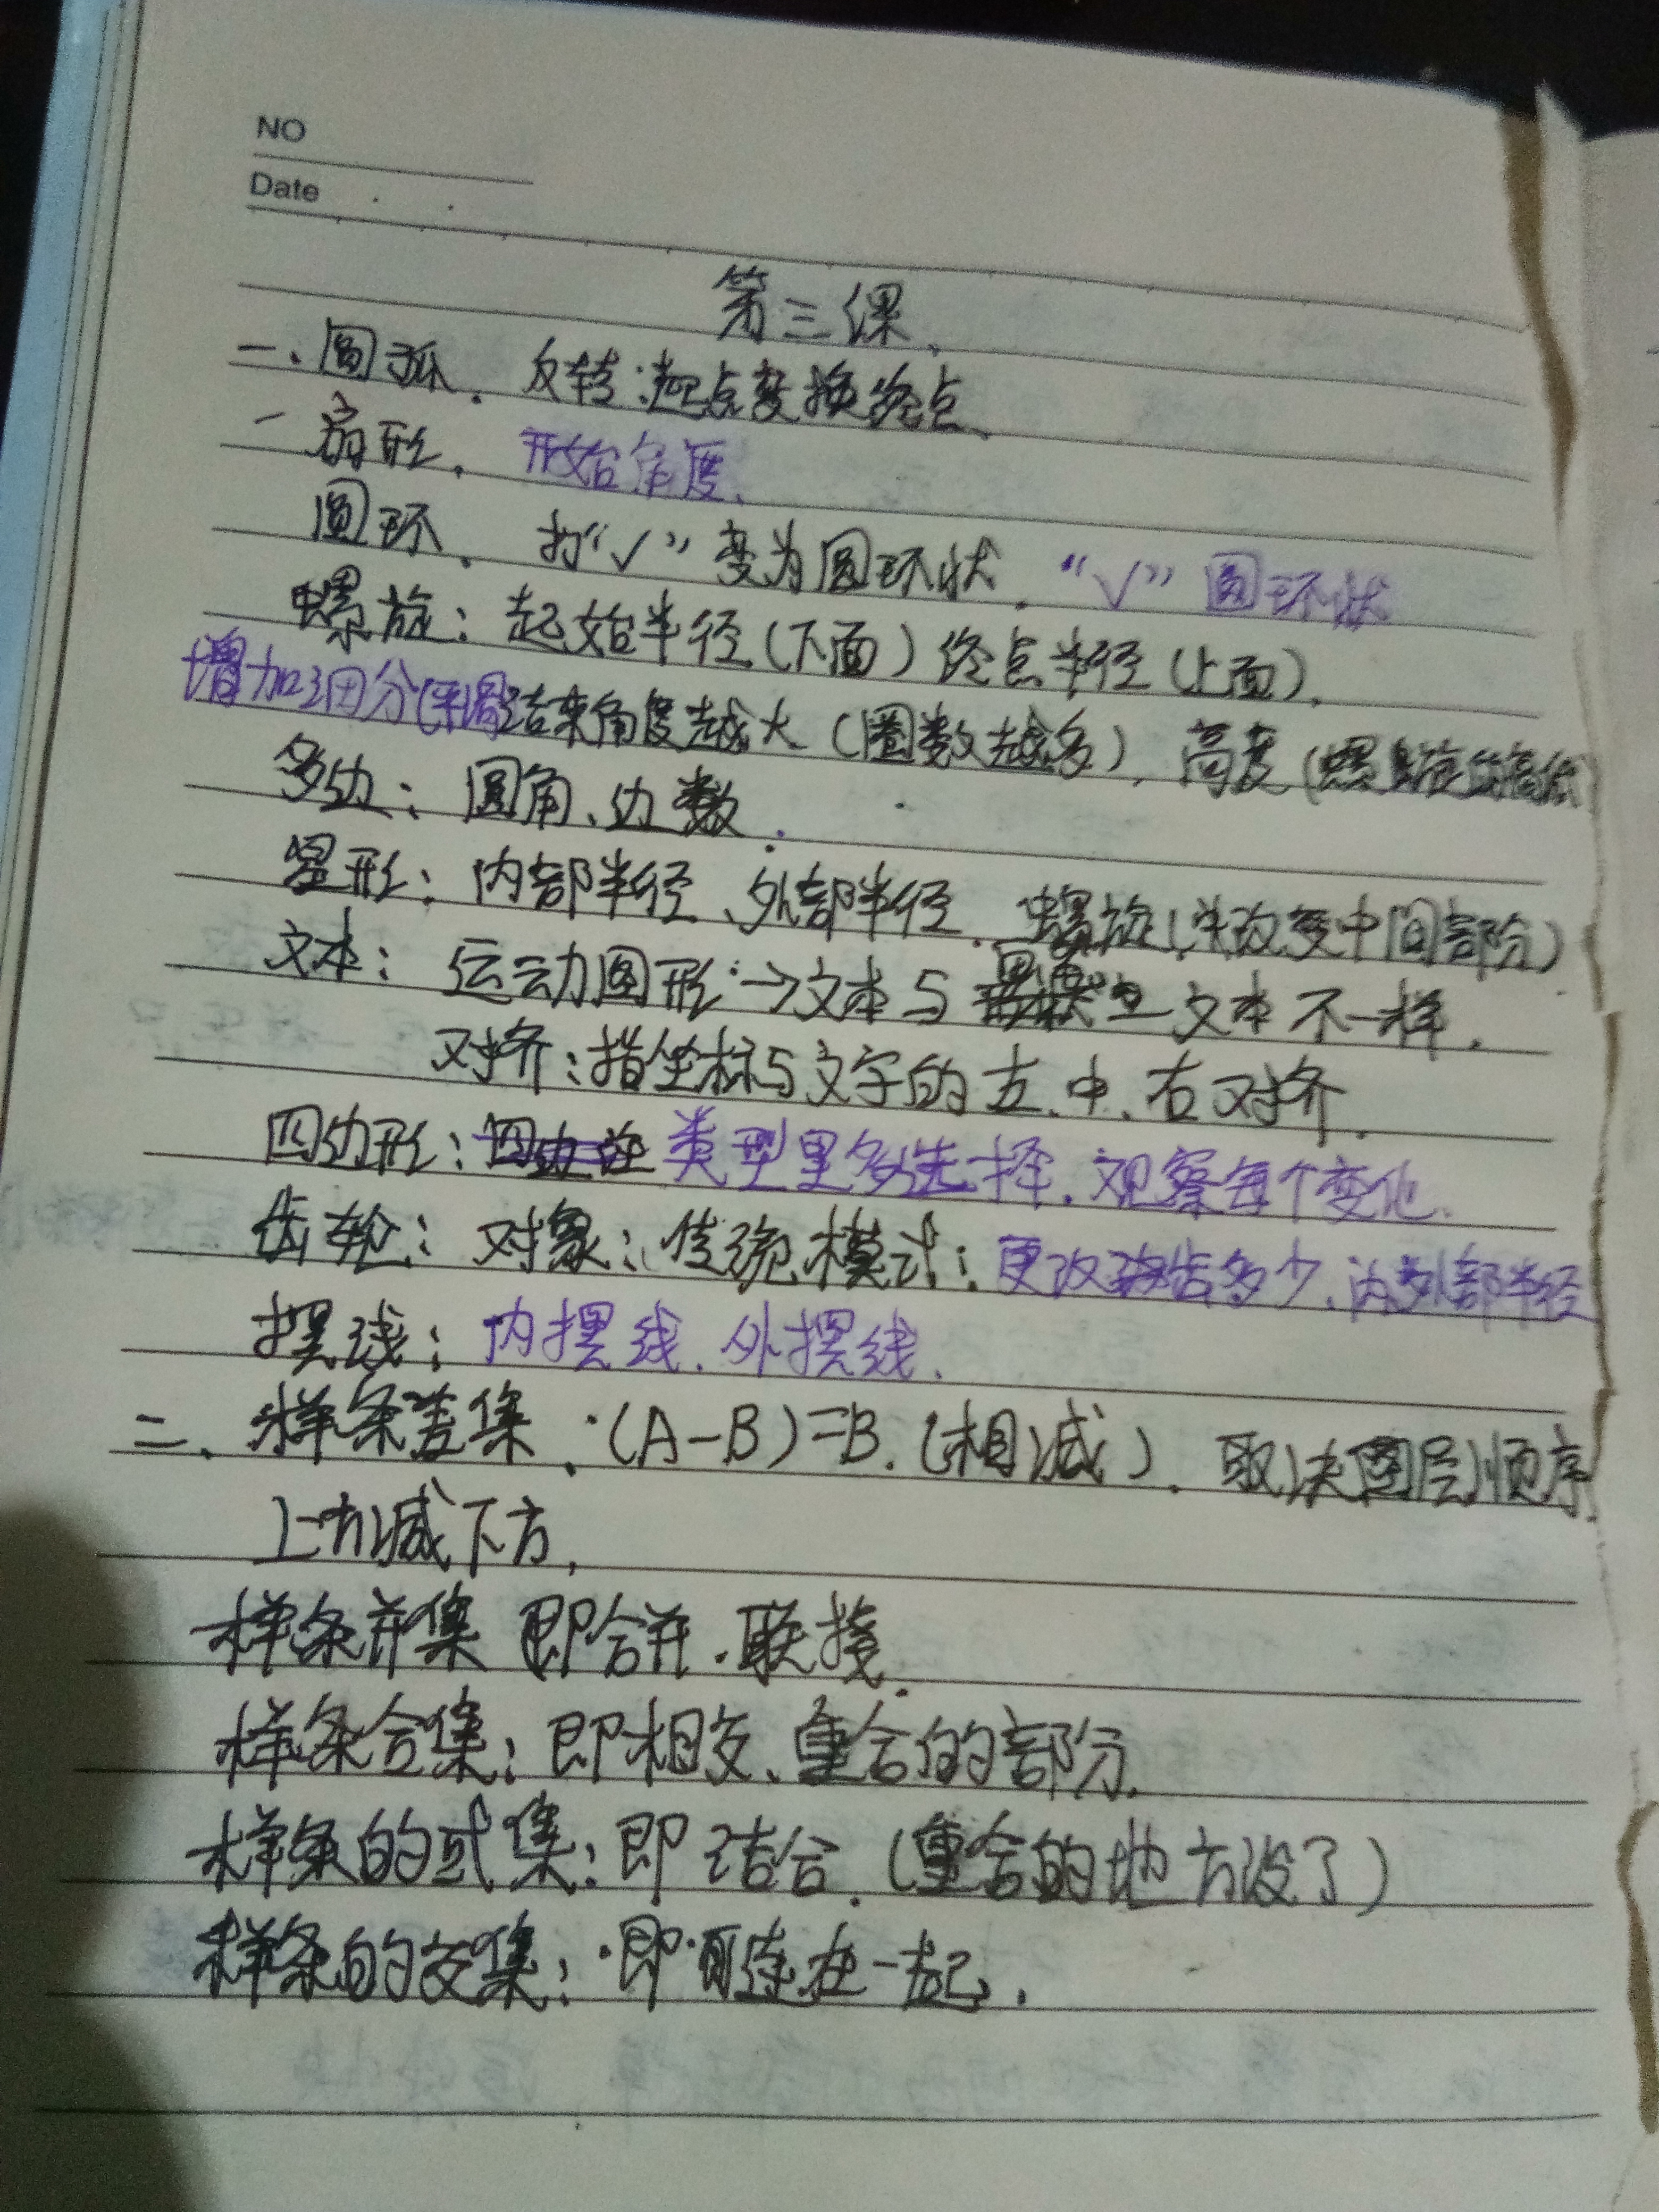 NO
Date
第三课、
一、圆弧．反转：起点变换终点、
一扇形．开始角度、
圆环．打“√”变为圆环状．“√”圆环状
螺旋：起始半径（下面）终点半径（上面）．
增加细分(平滑 结束角度越大（圈数越多），高度(螺旋的高低)
多边：圆角、边数．
星形：内部半径、外部半径．螺旋（只改变中间部分）
文本：运动图形→文本与 文本不一样．
对齐：指坐标与文字的左、中、右对齐．
四边形：类型里多选择．观察每个变化．
齿轮：对象：传统模式：更改 齿多少．内外部半径
摆线：内摆线．外摆线．
二、样条差集．(A-B)=B．（相减）．取决图层顺序．
上方减下方，
样条并集 即合并．联接．
样条合集：即相交、重合的部分．
样条的或集：即结合．（重合的地方没了）
样条的交集：即 连在一起．